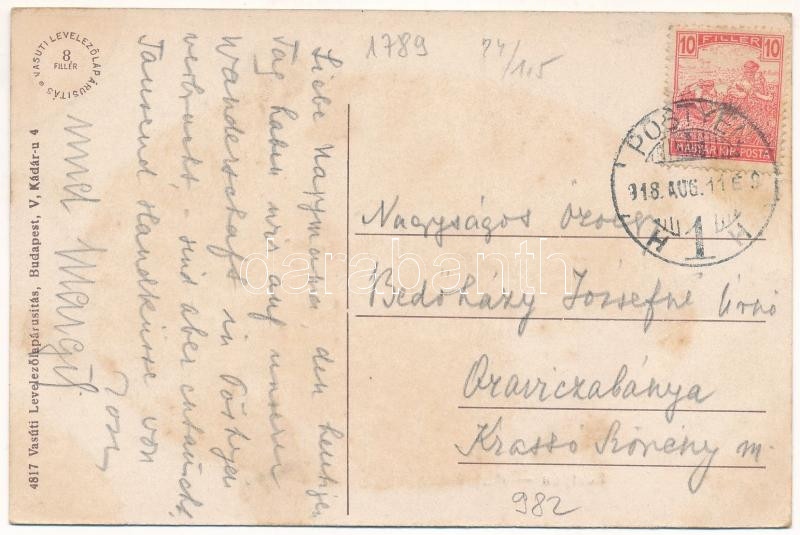 VASUTI LEVELEZŐLAPÁRUSITÁS
8
FILLÉR
4817 Vasúti Levelezőlapárusitás, Budapest, V, Kádár-u 4
1789
24/1,5
Liebe Nagymama, den heutigen
Tag haben wir auf unserer
Wanderschaft in Pöstyén
verbracht, sind aber enttäuscht.
Tausend Handküsse von
und Margit
10 FILLÉR 10
MAGYAR KIR. POSTA
PÖSTYÉN
918. AUG. 11
H 1 H
Nagyságos Özvegy
Bedőházy Józsefné Úrnő
Oraviczabánya
Krassó Szörény m.
982
darabanth